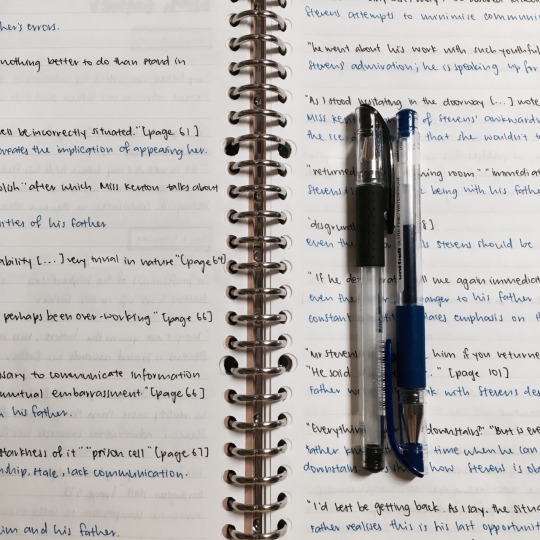 her's errors.
nothing better to do than stand in
ell be incorrectly situated." [page 61]
creates the implication of appearing her.
olish" after which Miss Kenton talks about
ities of his father
ability [...] very trivial in nature" [page 64]
perhaps been over-working" [page 66]
ssary to communicate information
mutual embarrassment" [page 66]
his father.
starkness of it" "prison cell" [page 67]
ndship, stale, lack communication.
im and his father.
Stevens attempts to minimise communi
"he went about his work with such youthful
Stevens' admiration; he is speaking up for
"As I stood hesitating in the doorway [...] note
Miss Ken of Stevens' awkward
the ice that she wouldn't
"returned ning room" "immediat
Stevens being with his fathe
"disgrun 8]
even the Stevens should be
"If he de rat ll me again immediat
even the anger to his father
constant ates emphasis on th
"Mr Stevens him if you returne
"He said ." [page 101]
Father w k with Stevens des
"Everything downstairs?" "But is ever
Father kn time when he can
downstairs how Stevens is ob
"I'd best be getting back. As I say, the situa
Father realises this is his last opportunit